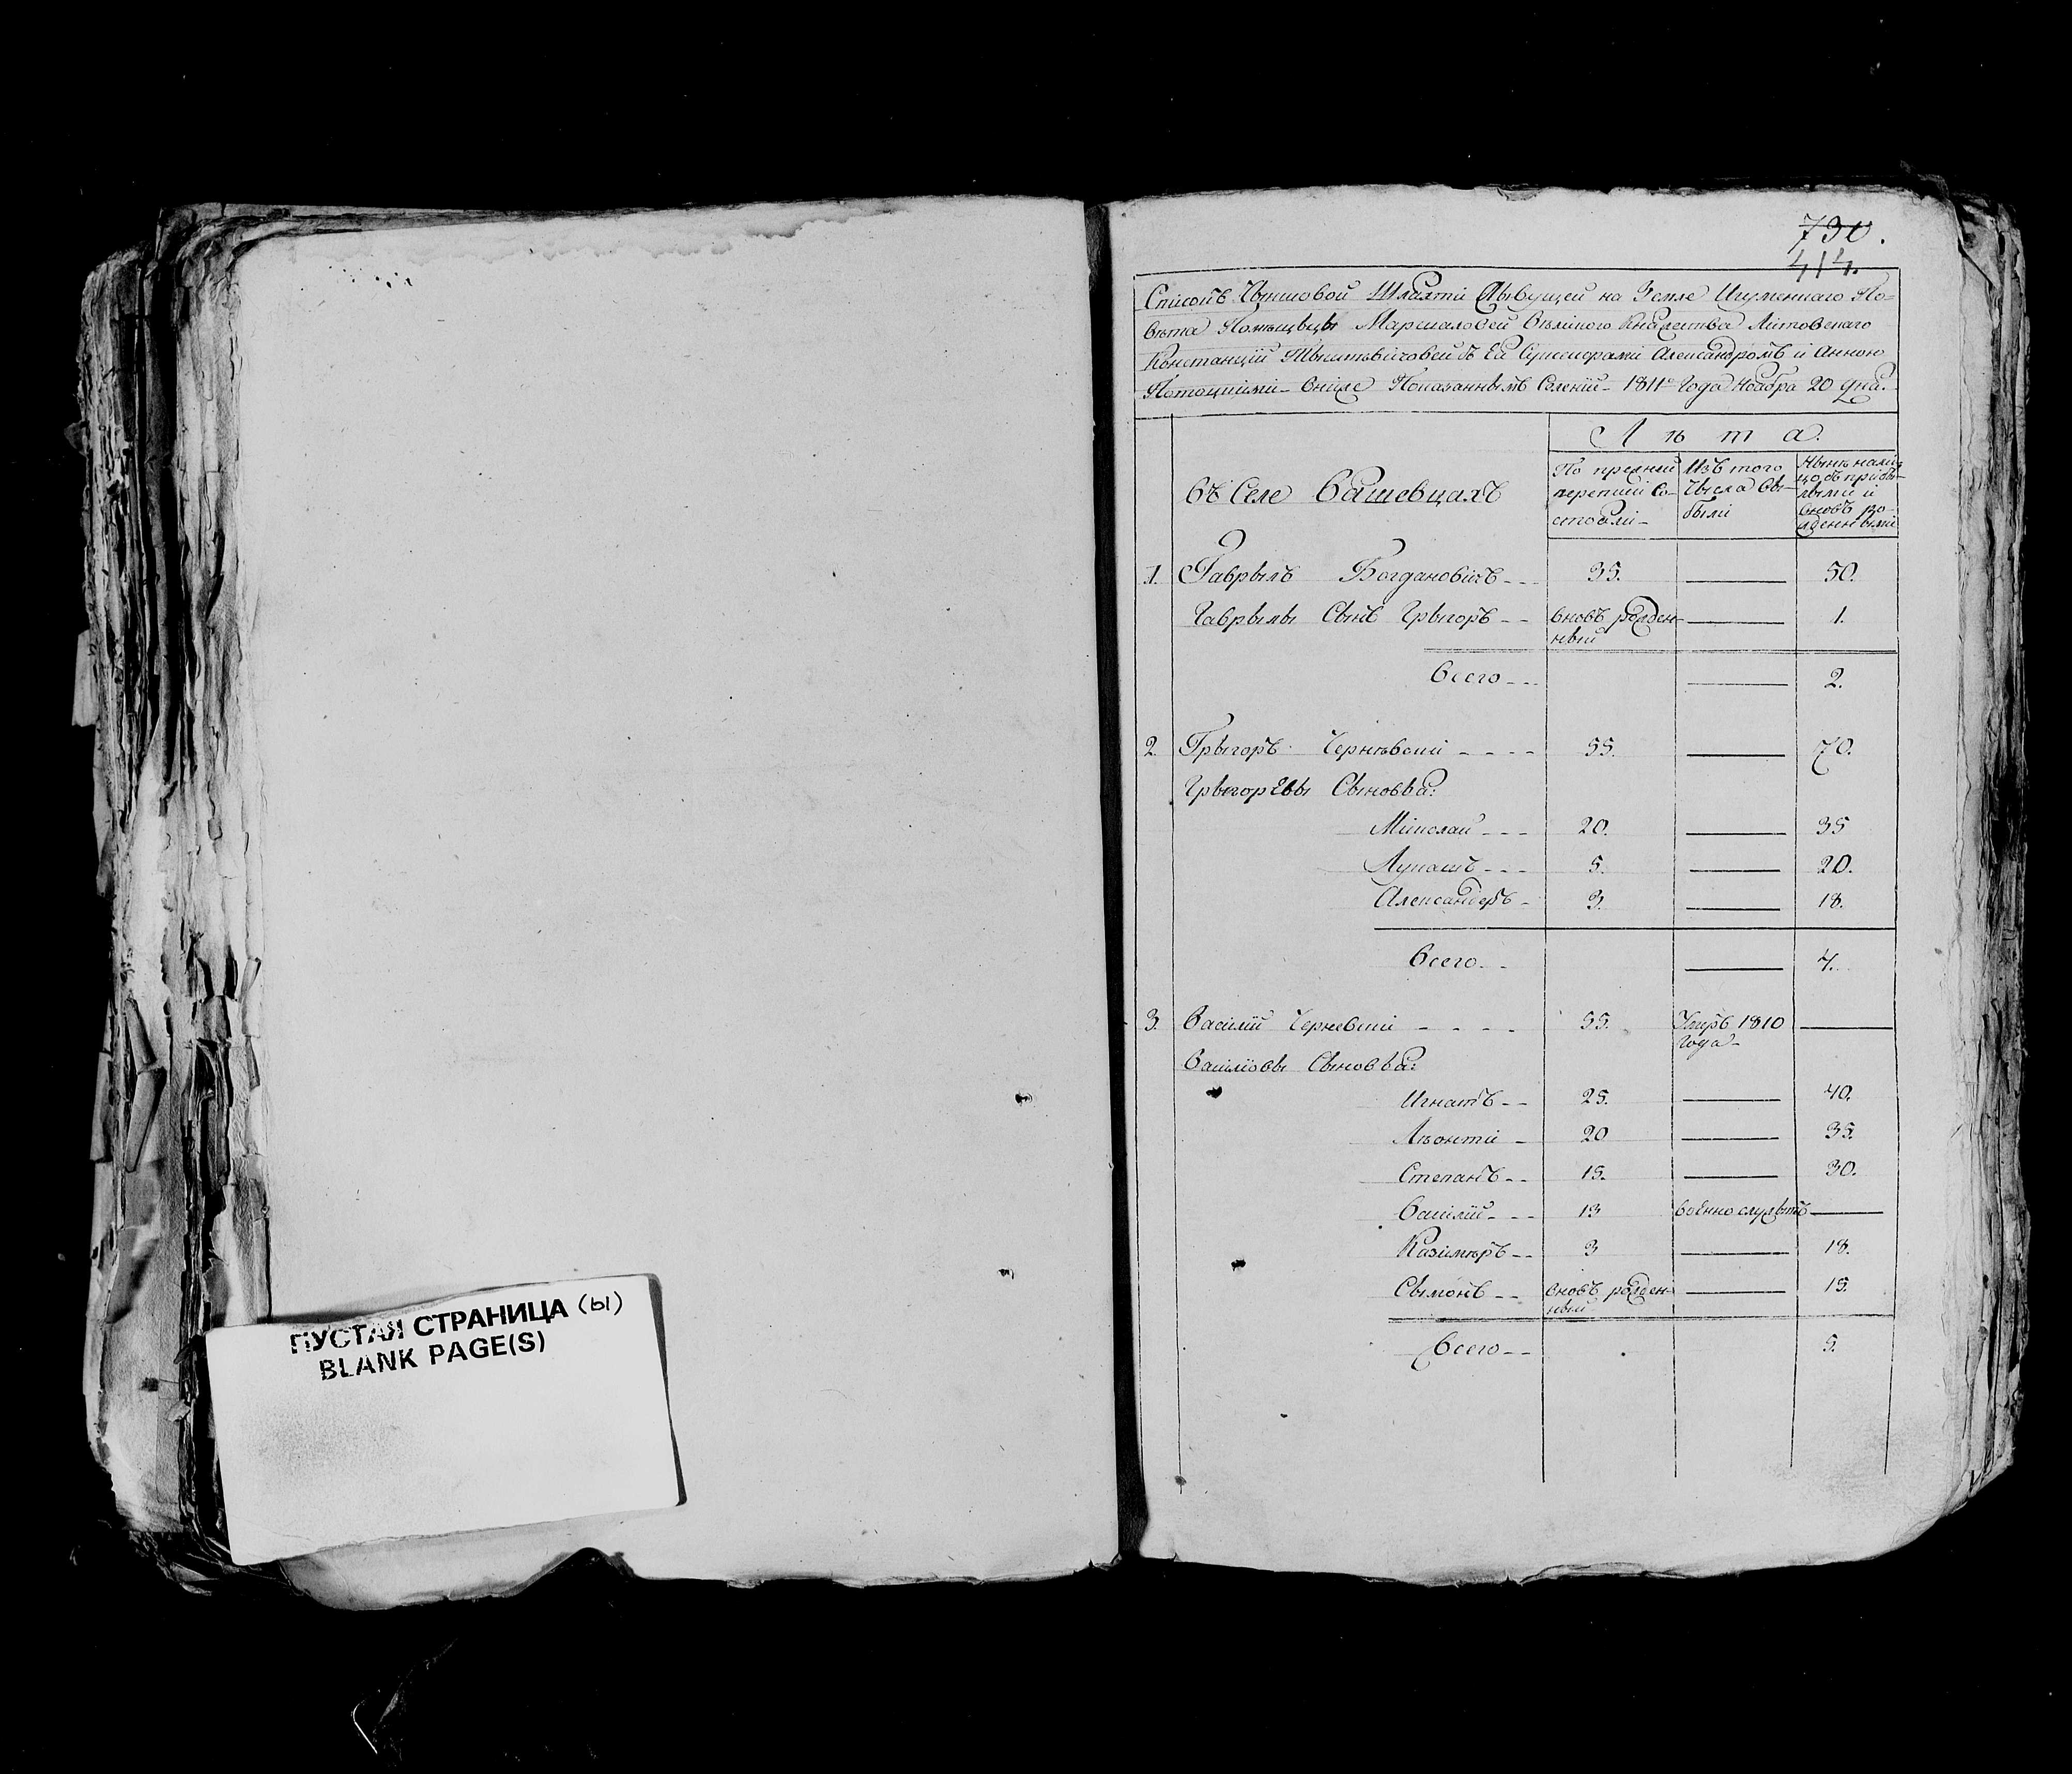 ПУСТАЯ СТРАНИЦА (ы)
BLANK PAGE(S)
730.
414.
Списокъ Чыншовой Шляхти Жывущей на Земле Игуменнаго По=
вѣта Помѣщицы Маршаловей Вѣлікого Княжества Литовскаго
Констанции Тышкѣвичовей съ Ея Сукцесорами Александромъ и Анною
Потоцкими 1811го Года Ноября 20 дня.
Лѣта.
Въ Селе Вашевцахъ
По прежней перепиӣ со-
стояли-
Изъ того
числа вы-
были
Нынѣ нали-
цо съ прибы-
лыми и
вновь ро-
жденными
1. Гаврылъ Богдановичъ - - - 35. — 50.
Гаврылы Сынъ Грыгоръ - - вновь рожден-
ный — 1.
Всего - - - — 2.
2. Грыгоръ Чернѣвский - - - - 55. — 70.
Грыгоревы Сыновья:
Миколай - - - 20. — 35
Лукашъ - - - 5. — 20.
Александеръ - 3. — 18.
Всего - - — 4.
3. Василий Черневский - - - - 55. Умръ 1810
года- —
Василовы Сыновья:
Игнатъ - - 25. — 40.
Лѣонтий - 20 — 35.
Степанъ - - 15. — 30.
Василий - - - 13 военно служытъ —
Казимѣръ - - 3 — 18.
Сымонъ - - вновь рожден-
ный — 15.
Всего - - 5.